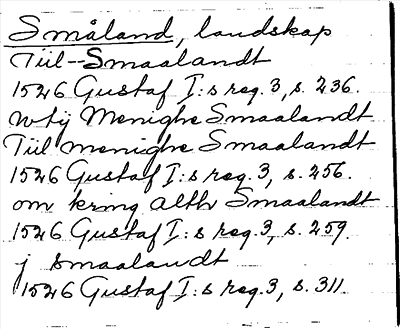 Småland, landskap
Tiil--Smaalandt
1526 Gustaf I:s reg. 3, s. 236.
wtij Menighe Smaalandt
Tiil menighe Smaalandt
1526 Gustaf I:s reg. 3, s. 256.
om kring alth Smaalandt
1526 Gustaf I:s reg. 3, s. 259
j smaalandt
1526 Gustaf I:s reg. 3, s. 311.